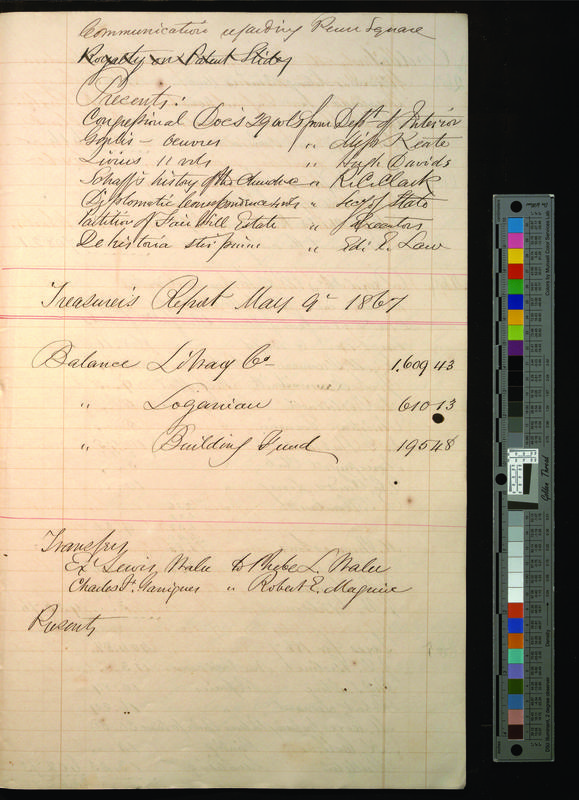 Communication regarding Penn Square
Royalty on Patent
Presents:
Congressional Doc's 29 vols from Dept of Interior
oeuvres " Miss Keate
Livius 11 vols " Hugh Davids
Schaff's history of the Church " R. C. Clark
Diplomatic Correspondence vols " Secy of State
Partition of Fair Hill Estate " Executors
De historia stirpium " Edi E. Law
Treasurer's Report May 9th 1867
Balance Library Co 1.609 43
" Loganian 610 13
" Building Fund 195 48
Transfers
Ex Lewis Waln to Phebe L. Waln
Charles H. Garrigues " Robert E. Maguire
Presents